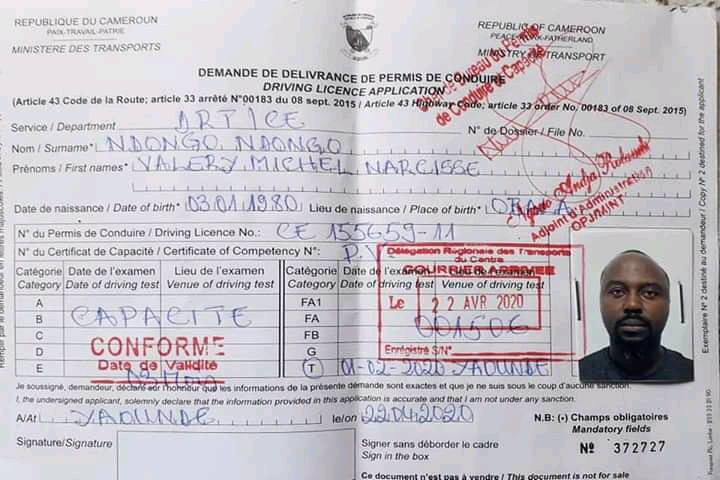 REPUBLIQUE DU CAMEROUN
PAIX-TRAVAIL-PATRIE
MINISTERE DES TRANSPORTS
REPUBLIC OF CAMEROON
PEACE-WORK-FATHERLAND
MINISTRY OF TRANSPORT
DEMANDE DE DELIVRANCE DE PERMIS DE CONDUIRE
DRIVING LICENCE APPLICATION
(Article 43 Code de la Route; article 33 arrêté N°00183 du 08 sept. 2015 / Article 43 Highway Code; article 33 order No. 00183 of 08 Sept. 2015)
Service / Department ARTICE
N° de Dossier / File No.
Nom / Surname* NDONGO NDONGO
Prénoms / First names* VALERY MICHEL NARCISSE
Date de naissance / Date of birth* 03.01.1980 Lieu de naissance / Place of birth* OBALA
Adjoint d'Administration
OPJ/MINT
N° du Permis de Conduire / Driving Licence No.: CE 155659-11
N° du Certificat de Capacité / Certificate of Competency N°: P.V
Catégorie Date de l'examen Lieu de l'examen Catégorie Date de l'examen Lieu de l'examen
Category Date of driving test Venue of driving test Category Date of driving test Venue of driving test
Délégation Régionale des Transports
du Centre
COURRIER ARRIVEE
Le 22 AVR 2020
001506
Enregistré S/N°
A FA1
B CAPACITE FA
C FB
D G
E T 01-02-2020 YAOUNDE
CONFORME
Date de Validité
Je soussigné, demandeur, déclare sur l'honneur que les informations de la présente demande sont exactes et que je ne suis sous le coup d'aucune sanction.
I, the undersigned applicant, solemnly declare that the information provided in this application is accurate and that I am not under any sanction.
A/At YAOUNDE le/on 22042020
N.B: (*) Champs obligatoires
Mandatory fields
Signature/Signature
Signer sans déborder le cadre
Sign in the box
No 372727
Ce document n'est pas à vendre / This document is not for sale
Exemplaire N° 2 destiné au demandeur / Copy N° 2 destined for the applicant